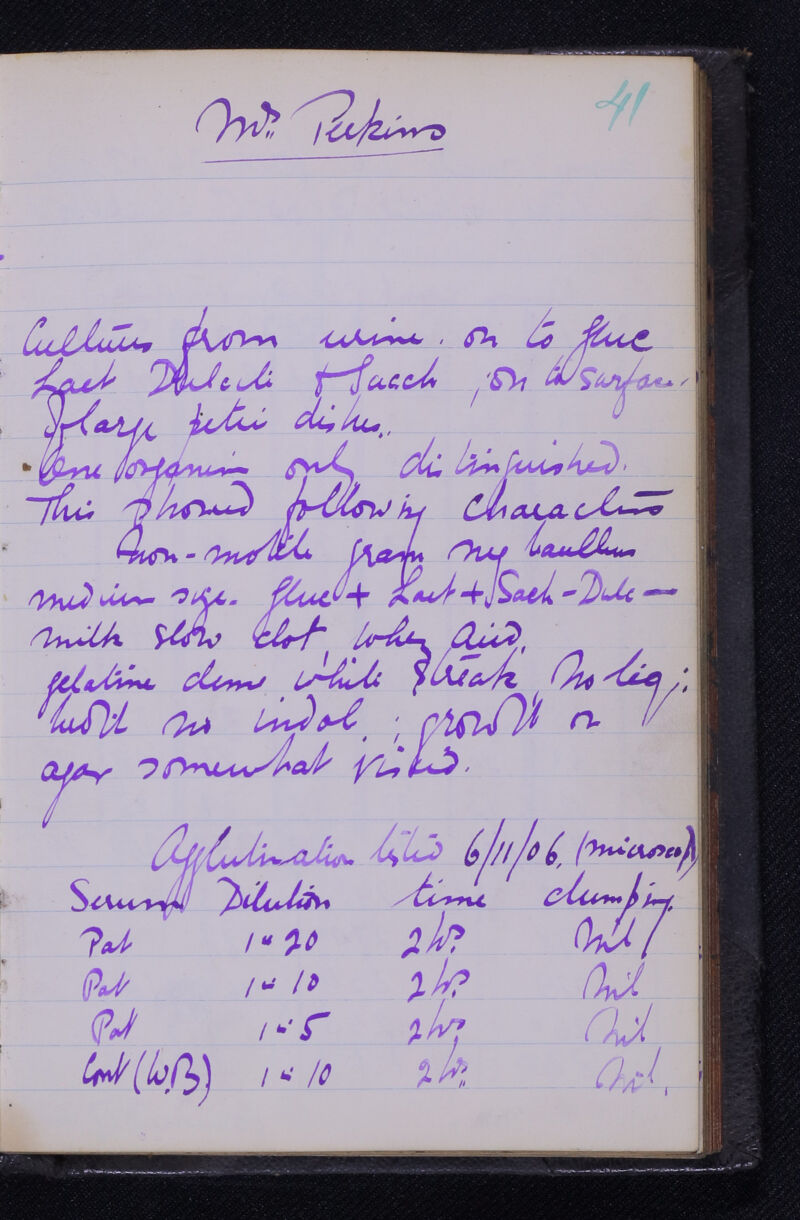 41
Mrs. Perkins
Cultures from urine. on to Gluc
Lact Dulcite & Sacch ; on to surface
of large petri dishes.
One organism only distinguished.
This showed following characters
non-motile gram neg bacillus
medium size. Gluc + Lact + Sach - Dulc -
milk slow clot, whey acid,
gelatine dense white streak, no liq;
broth no indol. ; growth on
agar somewhat viscid.
Agglutination tested 6/11/06. (microscop)
Serum Dilution time clumping.
Pat 1 in 20 2 hrs Nil
Pat 1 in 10 2 hrs Nil
Pat 1 in 5 2 hrs Nil
Cont (W.B.) 1 in 10 2 hrs Nil.